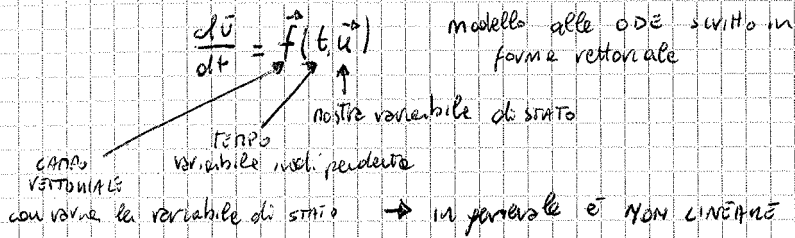 dū/dt = f⃗(t, u⃗) modello alle ODE scritto in
forma vettoriale
nostra variabile di STATO
TEMPO
variabile indipendente
CAMPO
VETTORIALE
con varia la variabile di STATO → in generale è NON LINEARE